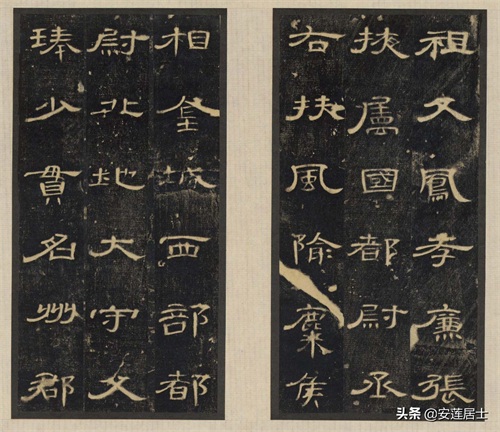 祖父鳳孝廉張
掖屬國都尉丞
右扶風隃麋侯
相金城西部都
尉北地大守父
琫少貫名州郡
头条 @安莲居士